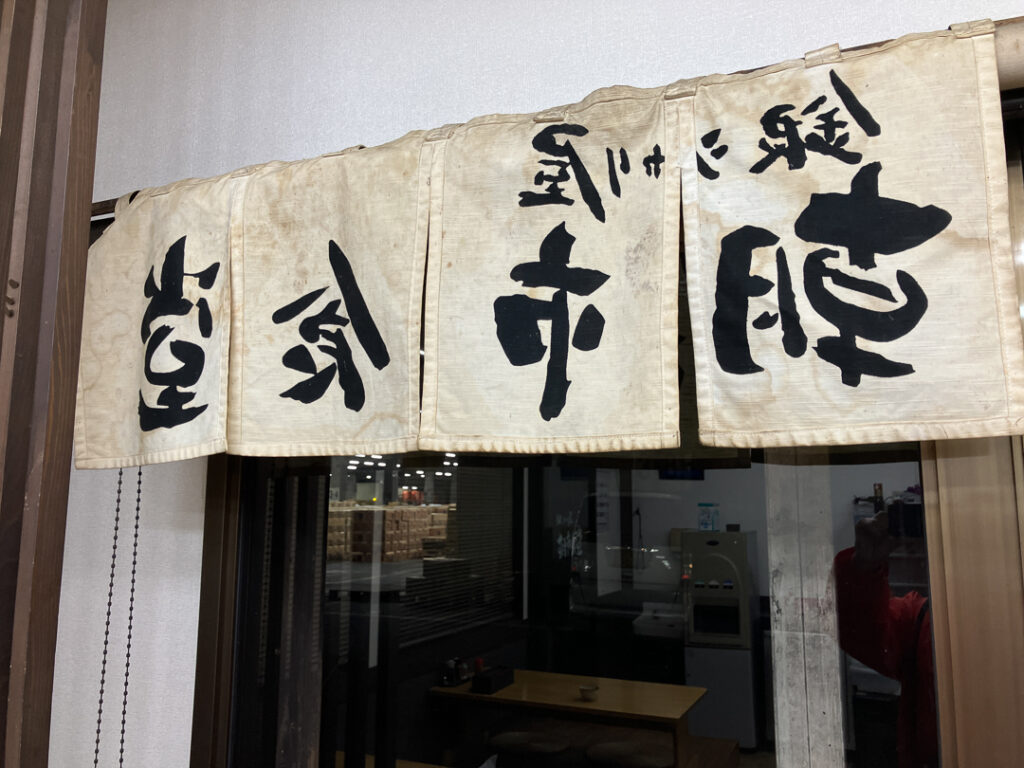 銀シャリ屋
朝市食堂